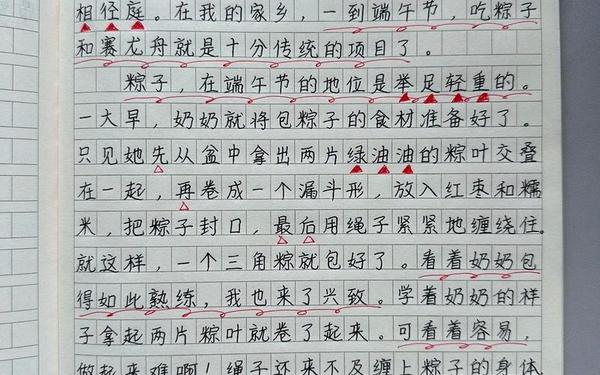 相径庭。在我的家乡，一到端午节，吃粽子
和赛龙舟就是十分传统的项目了。
粽子，在端午节的地位是举足轻重的。
一大早，奶奶就将包粽子的食材准备好了。
只见她先从盆中拿出两片绿油油的粽叶交叠
在一起，再卷成一个漏斗形，放入红枣和糯
米，把粽子封口，最后用绳子紧紧地缠绕住。
就这样，一个三角粽就包好了。看着奶奶包
得如此熟练，我也来了兴致。学着奶奶的样
子拿起两片粽叶就卷了起来。可看着容易，
做起来难啊！绳子还来不及缠上粽子的身体